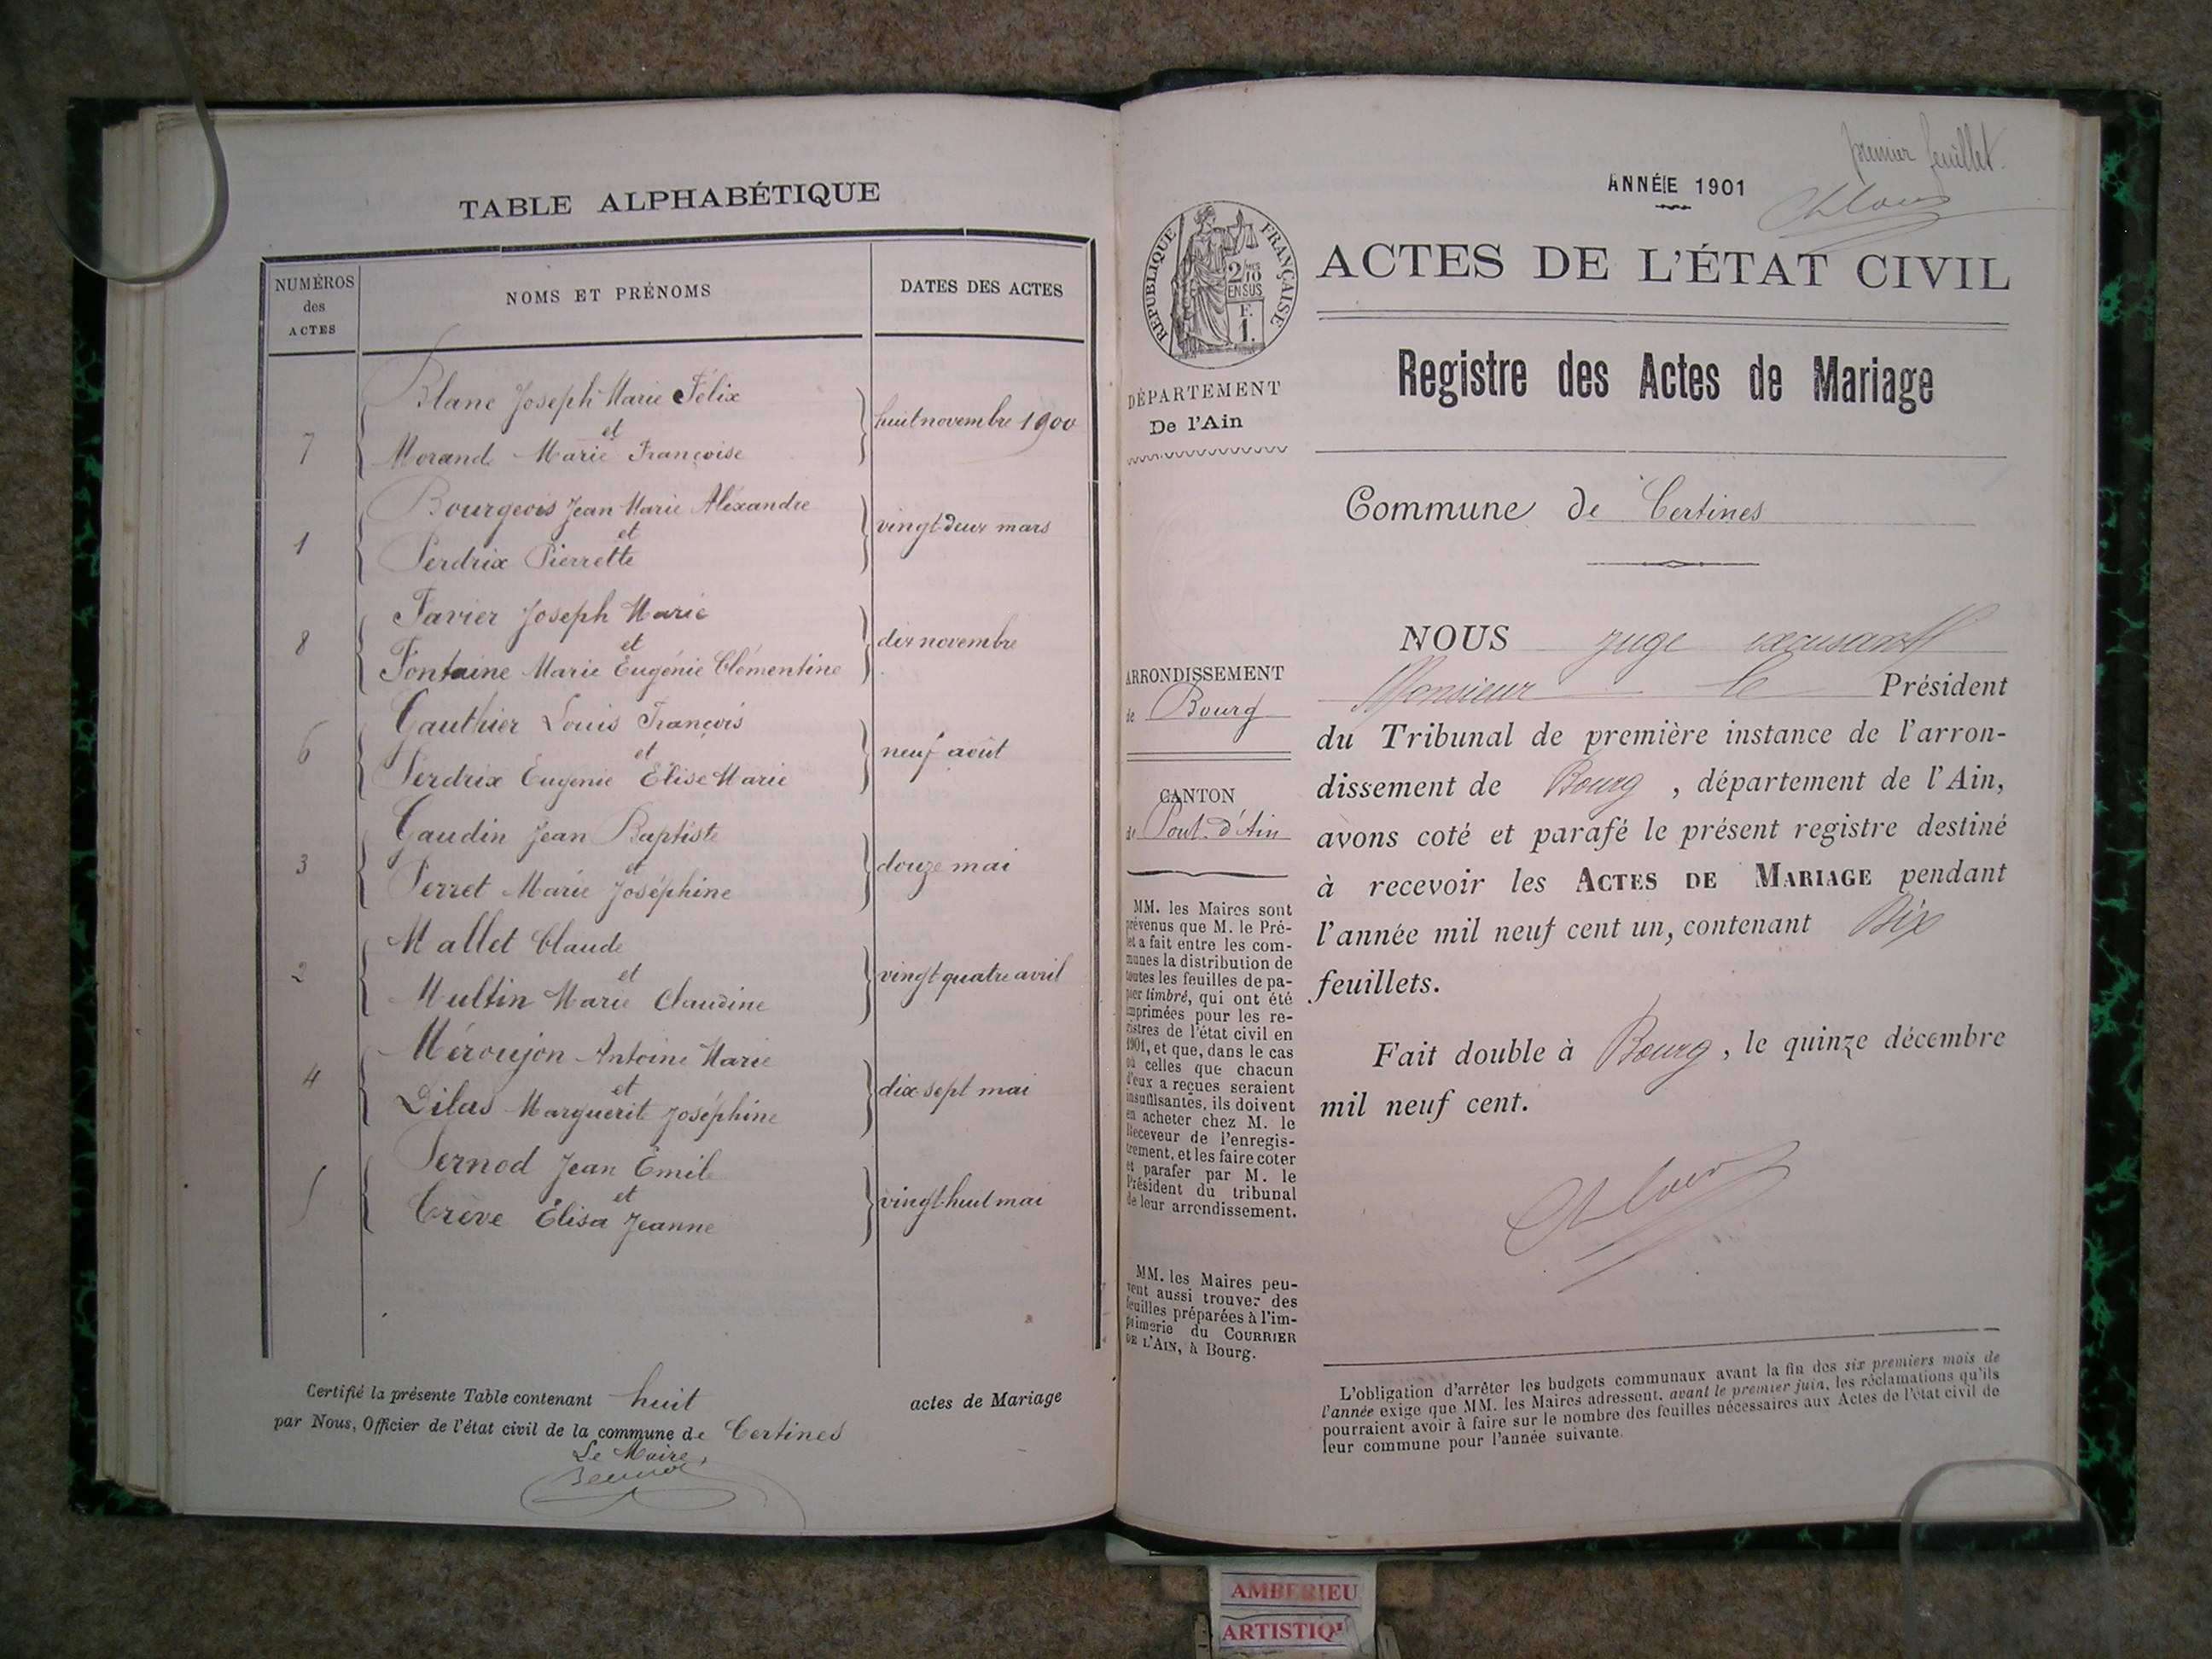 TABLE ALPHABÉTIQUE
NUMÉROS
des
ACTES
NOMS ET PRÉNOMS
DATES DES ACTES
Blanc Joseph Marie Félix
et
7
huit novembre 1900
Morand Marie Françoise
Bourgeois Jean Marie Aléxandre
et
1
vingt-deux mars
Perdrix Pierrette
Favier Joseph Marie
et
8
dix novembre
Fontaine Marie Eugénie Clémentine
Gauthier Louis François
et
6
neuf août
Perdrix Eugénie Élise Marie
Gaudin Jean Baptiste
et
3
douze mai
Perret Marie Joséphine
Mallet Claude
et
2
vingt-quatre avril
Multin Marie Claudine
Méroujon Antoine Marie
et
4
dix-sept mai
Dilas Marguerite Joséphine
Pernod Jean Émile
et
5
vingt-huit mai
Crève Élisa Jeanne
Certifié la présente Table contenant huit actes de Mariage
par Nous, Officier de l'état civil de la commune de Certines
Le Maire,
premier feuillet.
ANNÉE 1901
RÉPUBLIQUE FRANÇAISE
2/10 MES
EN SUS
F.
1.
ACTES DE L'ÉTAT CIVIL
Registre des Actes de Mariage
DÉPARTEMENT
De l'Ain
Commune de Certines
ARRONDISSEMENT
de Bourg
CANTON
de Pont-d'Ain
MM. les Maires sont
prévenus que M. le Pré-
fet a fait entre les com-
munes la distribution de
toutes les feuilles de pa-
pier timbré, qui ont été
imprimées pour les re-
gistres de l'état civil en
1901, et que, dans le cas
où celles que chacun
d'eux a reçues seraient
insuffisantes, ils doivent
en acheter chez M. le
Receveur de l'enregis-
trement, et les faire coter
et parafer par M. le
Président du tribunal
de leur arrondissement.
MM. les Maires peu-
vent aussi trouver des
feuilles préparées à l'im-
primerie du COURRIER
DE L'AIN, à Bourg.
NOUS juge
Monsieur le Président
du Tribunal de première instance de l'arron-
dissement de Bourg, département de l'Ain,
avons coté et parafé le présent registre destiné
à recevoir les ACTES DE MARIAGE pendant
l'année mil neuf cent un, contenant
feuillets.
Fait double à Bourg, le quinze décembre
mil neuf cent.
L'obligation d'arrêter les budgets communaux avant la fin des six premiers mois de
l'année exige que MM. les Maires adressent, avant le premier juin, les réclamations qu'ils
pourraient avoir à faire sur le nombre des feuilles nécessaires aux Actes de l'état civil de
leur commune pour l'année suivante.
AMBERIEU
ARTISTIQ